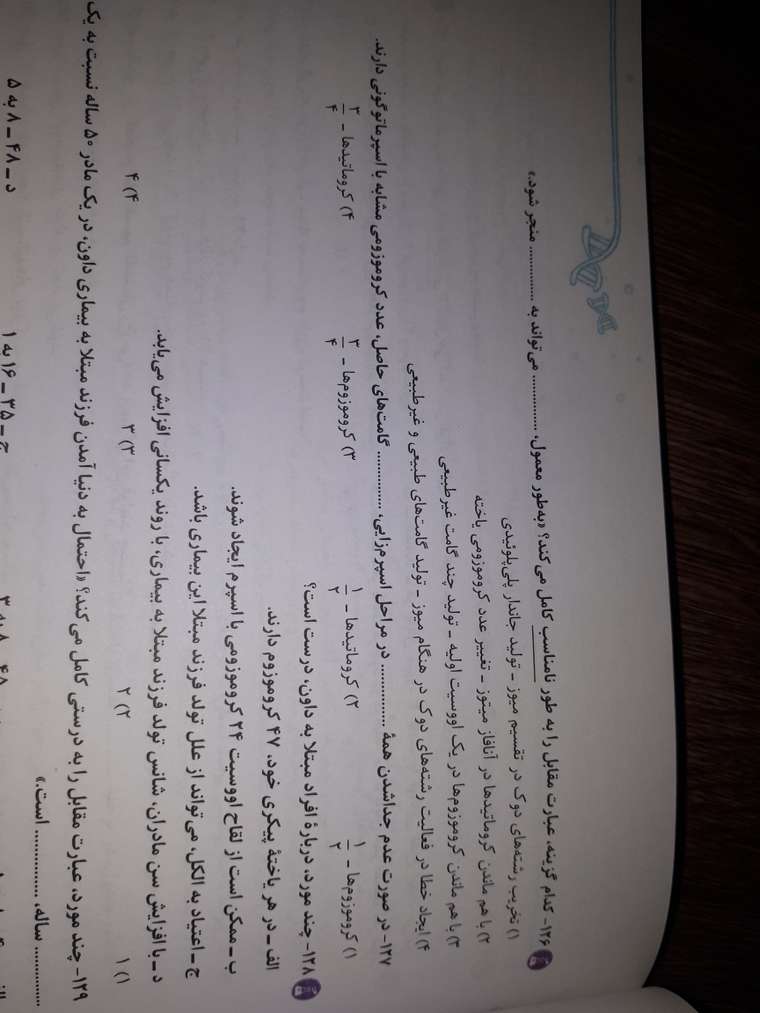 ۱۲۶- کدام گزینه، عبارت مقابل را به طور نامناسب کامل می‌کند؟ «به‌طور معمول، .............. می‌تواند به .............. منجر شود.»
۱) تخریب رشته‌های دوک در تقسیم میوز - تولید جاندار پلی‌پلوئیدی
۲) با هم ماندن کروماتیدها در آنافاز میتوز - تغییر عدد کروموزومی یاخته
۳) با هم ماندن کروموزوم‌ها در یک اووسیت اولیه - تولید چند گامت غیرطبیعی
۴) ایجاد خطا در فعالیت رشته‌های دوک در هنگام میوز - تولید گامت‌های طبیعی و غیرطبیعی
۱۲۷- در صورت عدم جداشدن همهٔ .............. در مراحل اسپرم‌زایی، .............. گامت‌های حاصل، عدد کروموزومی مشابه با اسپرماتوگونی دارند.
۱) کروموزوم‌ها - ۱/۲ ۲) کروماتیدها - ۱/۲ ۳) کروموزوم‌ها - ۳/۴ ۴) کروماتیدها - ۳/۴
۱۲۸- چند مورد، دربارهٔ افراد مبتلا به داون، درست است؟
الف - در هر یاختهٔ پیکری خود، ۴۷ کروموزوم دارند.
ب - ممکن است از لقاح اووسیت ۲۴ کروموزومی با اسپرم ایجاد شوند.
ج - اعتیاد به الکل، می‌تواند از علل تولد فرزند مبتلا این بیماری باشد.
د - با افزایش سن مادران، شانس تولد فرزند مبتلا به بیماری، با روند یکسانی افزایش می‌یابد.
۱) ۱ ۲) ۲ ۳) ۳ ۴) ۴
۱۲۹- چند مورد، عبارت مقابل را به درستی کامل می‌کند؟ «احتمال به دنیا آمدن فرزند مبتلا به بیماری داون، در یک مادر ۵۰ ساله نسبت به یک
ساله، .............. است.»
ج - ۳۵ - ۱۶ به ۱ د - ۴۸ - ۸ به ۵